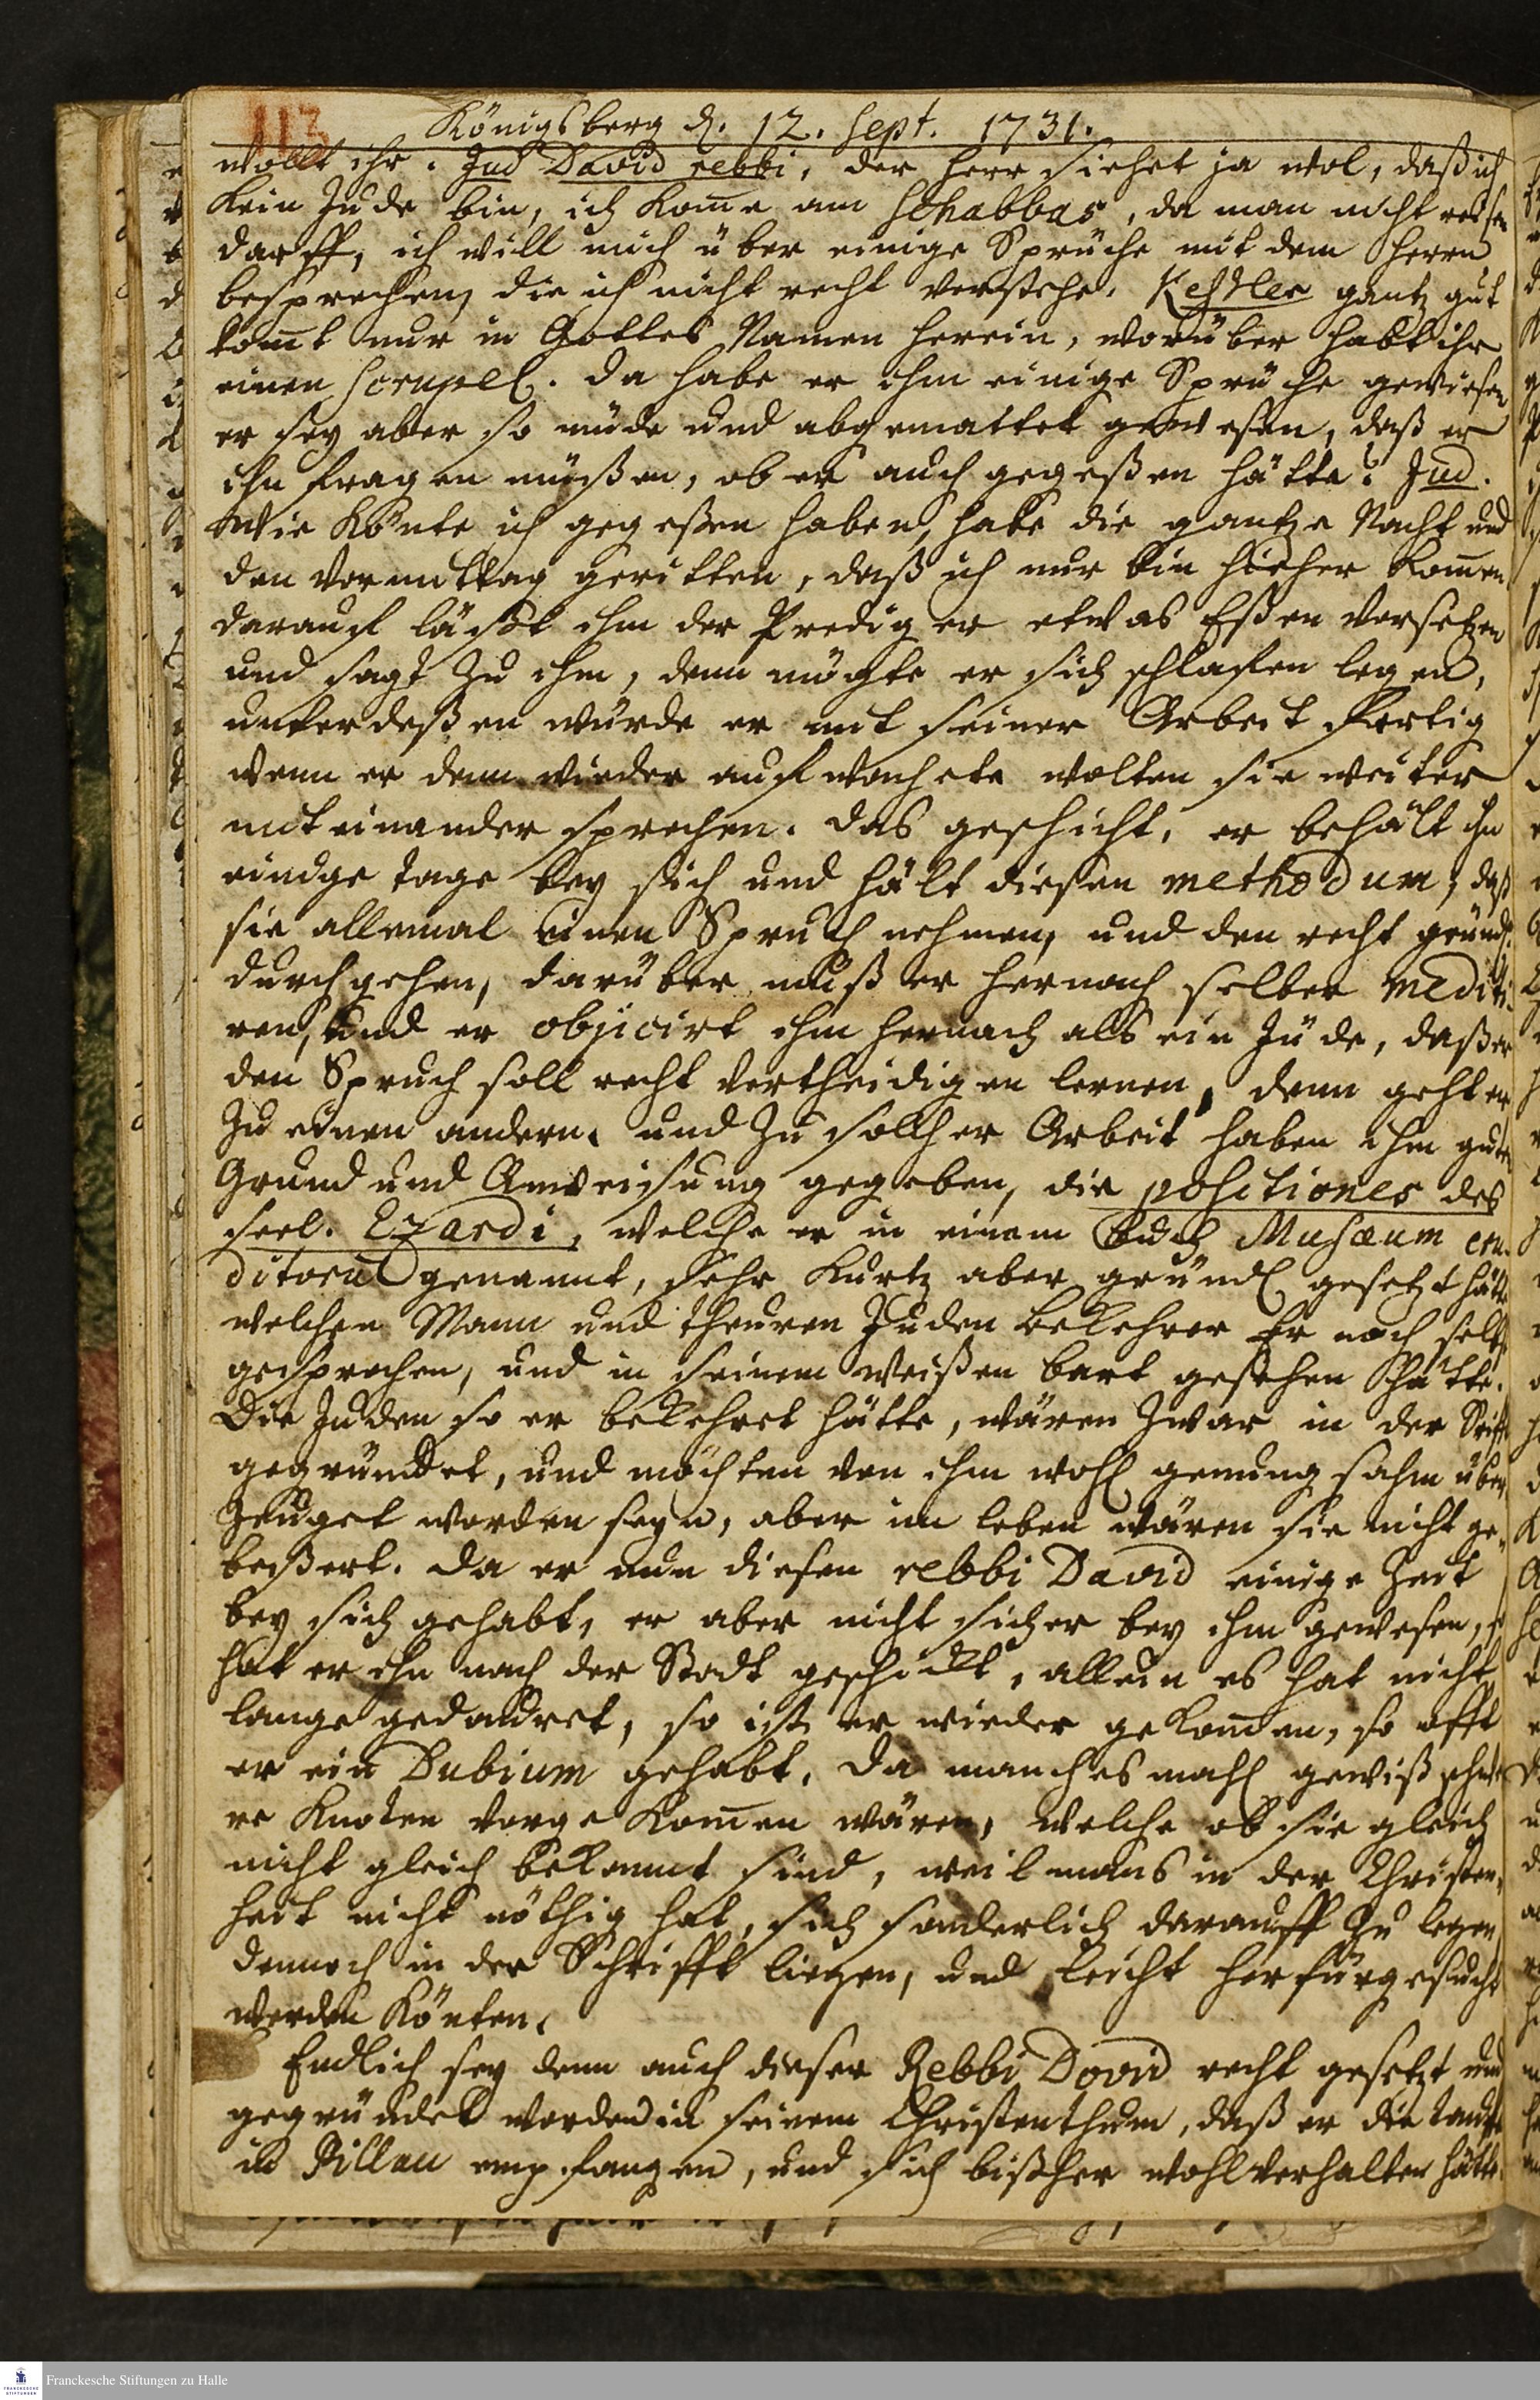 113
Königsberg d. 12. Sept. 1731.
wollt ihr. Jud David rebbi, der Herr siehet ja wol, daß ich
kein Jude bin, ich kom̅e am Schabbas, da man nicht reisen
darff, ich will mich über einige Sprüche mit dem Herrn
besprechen, die ich nicht recht verstehe. Kessler gantz gut
kom̅t nur in Gottes Namen herein, worüber habt ihr
einen scrupel. da habe er ihm einige Sprüche gewiesen
er sey aber so müde und abgemattet gewesen, daß er
ihn fragen müßen, ob er auch gegeßen hätte? Jud.
Wie könte ich gegeßen haben, habe die gantze Nacht und
den Vormittag geritten, daß ich nur bin hieher kom̅en
darauf läßt ihm der Prediger etwas Eßen versetzen
und sagt zu ihm, denn möchte er sich schlafen legen,
unterdeßen würde er mit seiner Arbeit fertig
wenn er denn wieder aufwachete wolten sie weiter
mit einander sprechen. das geschicht, er behält ihn
einige tage bey sich und hält diesen methodum, daß
sie allemal einen Spruch nehmen, und den recht gründl.
durchgehen, darüber muß er hernach selber mediti-
ren, und er objicirt ihm hernach als ein Jude, daß er
den Spruch soll recht vertheidigen lernen, denn geht er
zu einen andern. und zu solcher Arbeit haben ihm guten
Grund und Anweisung gegeben, die positiones des
seel. Ezardi, welche er in einem Buch Musæum eru-
ditorũ genannt, sehr kurtz aber gründl gesetzt hätte
welchen Mann und theuren Juden bekehrer Er noch selbst
gesprochen, und in seinem weißen bart gesehen hätte.
Die Juden so er bekehret hätte, wären zwar in der Schrifft
gegründet, und möchten von ihm wohl genungsahm über
zeuget worden seyn, aber im leben wären sie nicht ge-
beßert. da er nun diesen rebbi David einige Zeit
bey sich gehabt, er aber nicht sicher bey ihm gewesen, so
hat er ihn nach der Stadt geschickt, allein es hat nicht
lange gedauret, so ist er wieder gekom̅en, so offt
er ein Dubium gehabt, da manchesmahl gewiß schwe
re Knoten vorgekom̅en wären, welche ob sie gleich
nicht gleich bekannt sind, weil mans in der Christen-
heit nicht nöthig hat, sich sonderlich darauff zu legen,
dennoch in der Schrifft liegen, und leicht herfürgesucht
werden könten.
Endlich sey denn auch dieser Rebbi Dovid recht gesetzt und
gegründet worden in seinem Christenthum, daß er die tauffe
in Pillau empfangen, und sich bißher wohl verhalten hätte.
Franckesche Stiftungen zu Halle